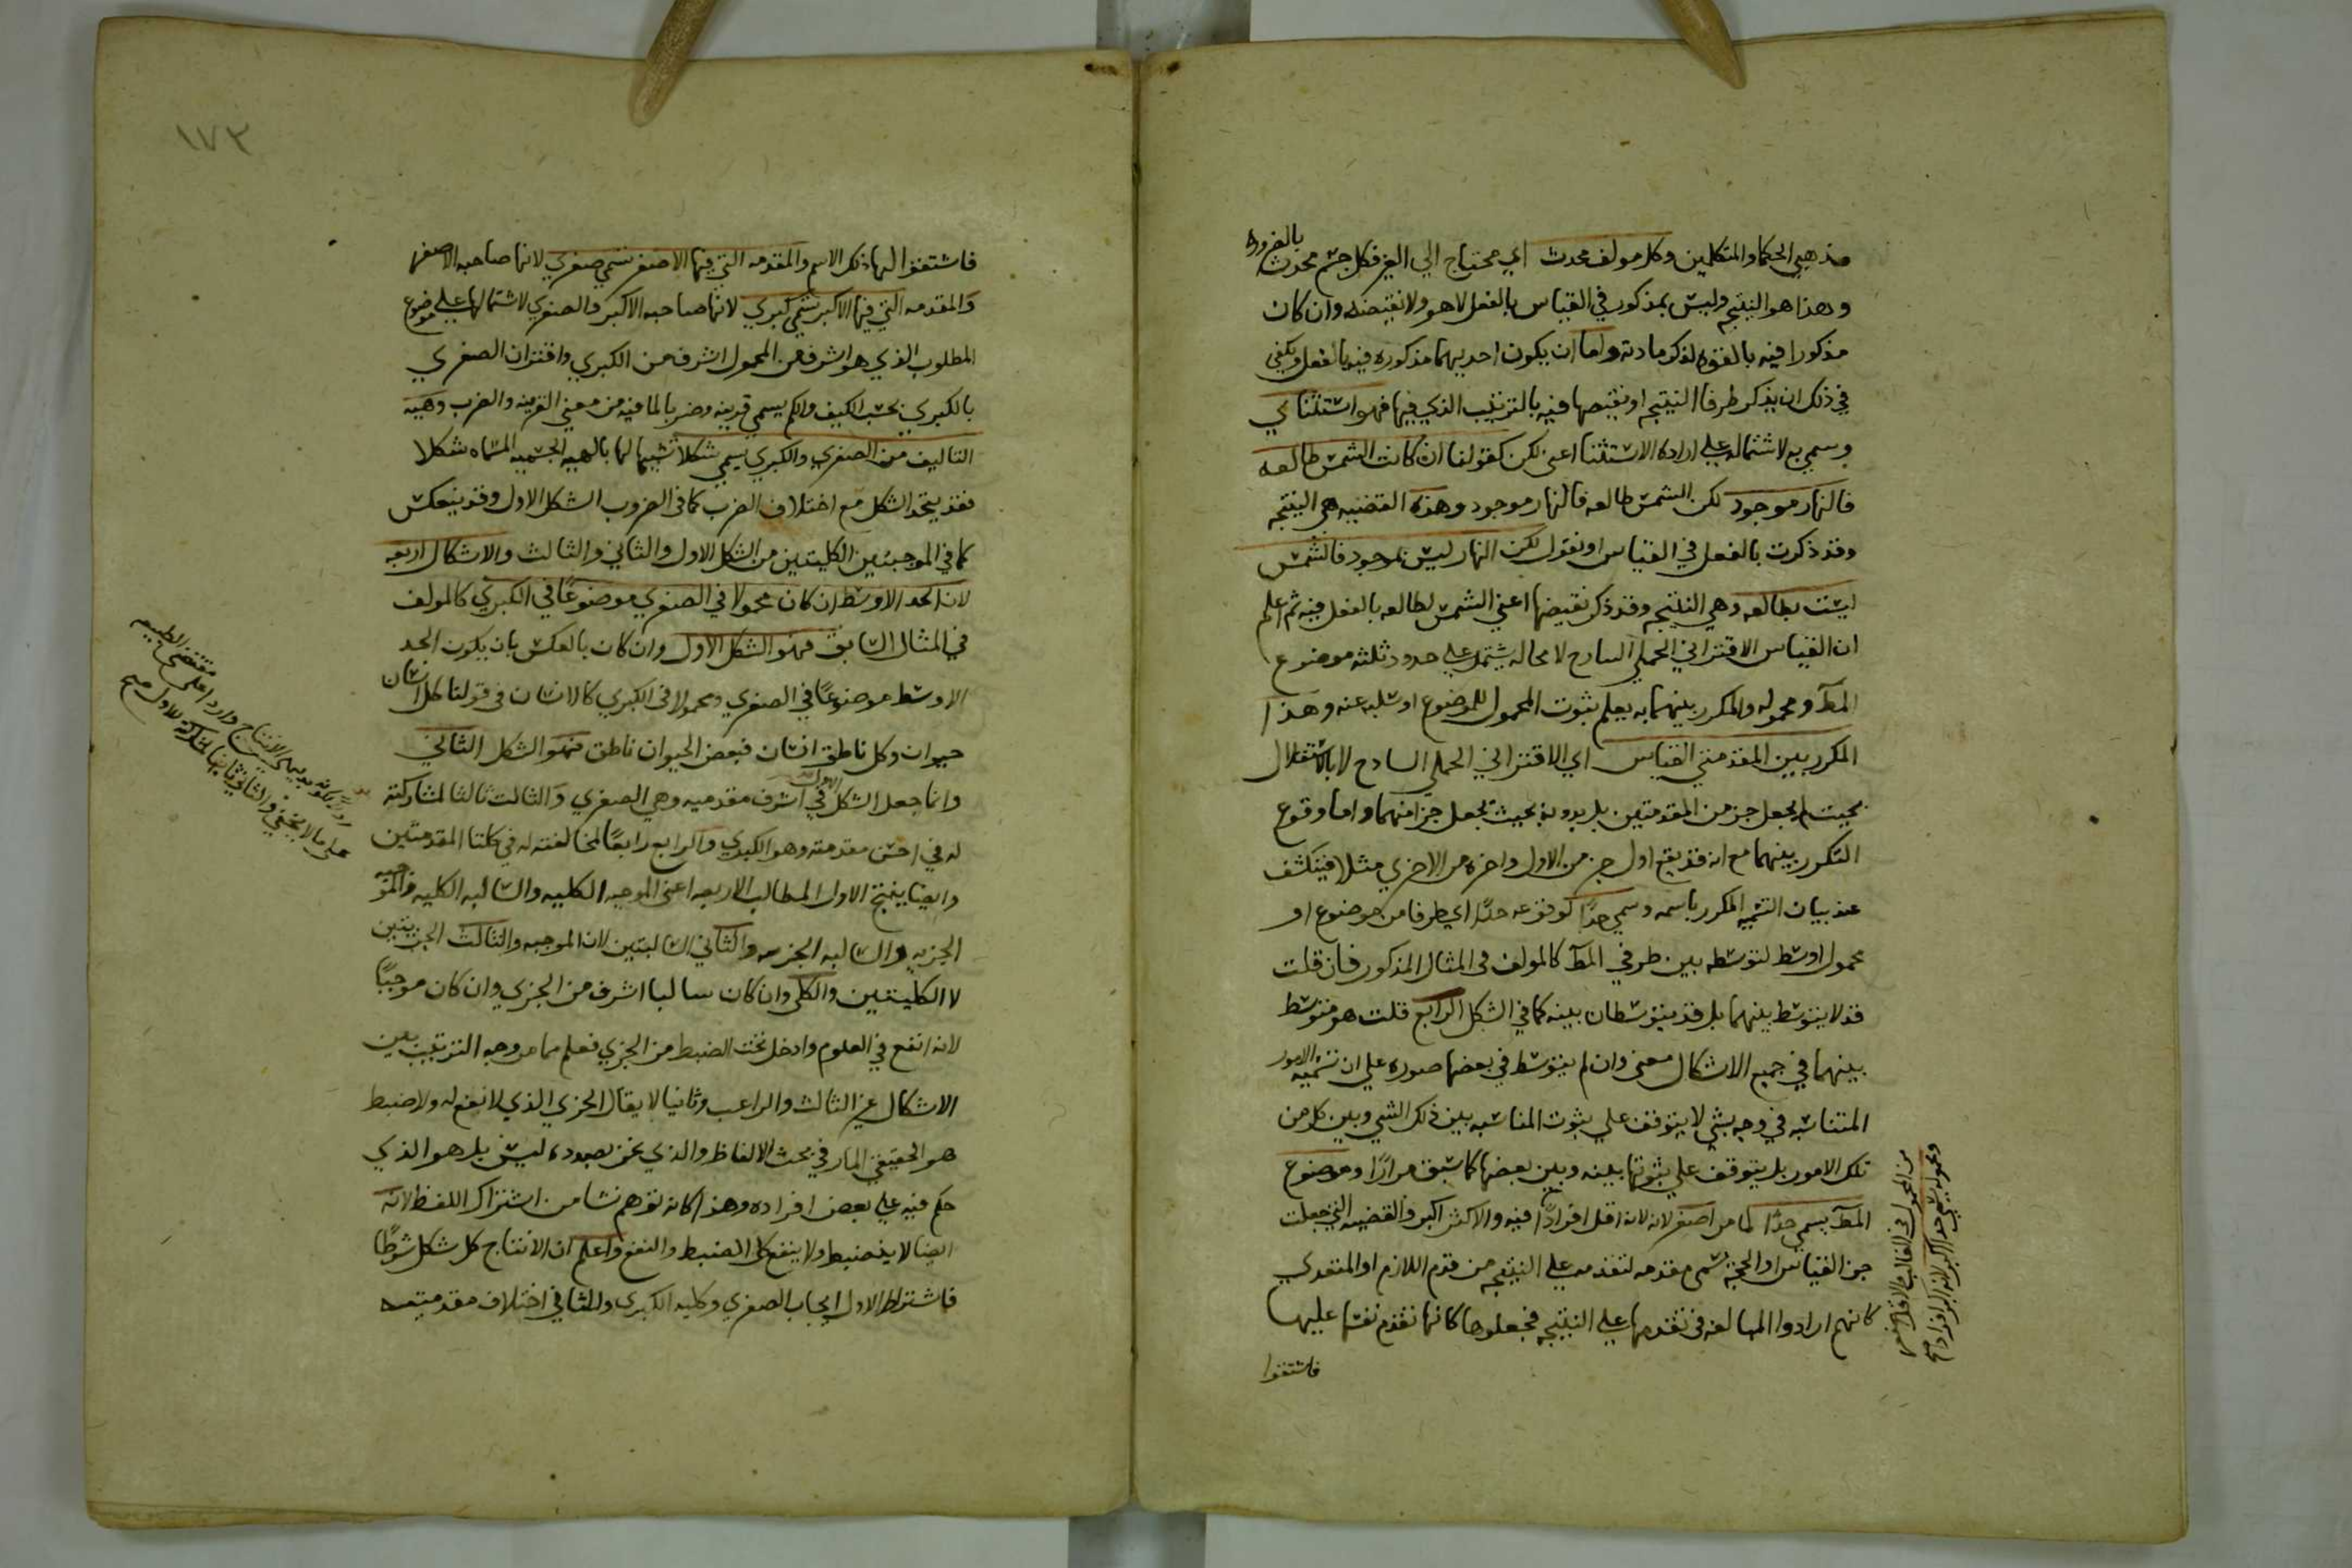 مذهبي الحكما والمتكلمين وكل مولف محدث اي محتاج الي الغير فكل جسم محدث بالضروره
وهذا هو النتيجه وليس بمذكور في القياس بالفعل لا هو ولا نقيضه وان كان
مذكورا فيه بالقوه لذكر مادته واما ان يكون احديهما مذكوره فيه بالفعل ويكفي
في ذلك ان يذكر طرفا النتيجه او نقيضها فيه بالترتيب الذي فيها فهو استثنائي
وسمي به لاشتماله علي اراده الاستثنا اعني لكن كقولنا ان كانت الشمس طالعه
فالنهار موجود لكن الشمس طالعه فالنهار موجود وهذه القضيه هي النتيجه
وقد ذكرت بالفعل في القياس او نقول لكن النهار ليس بموجود فالشمس
ليست بطالعه وهي النتيجه وقد ذكر نقيضها اعني الشمس طالعه بالفعل فيه ثم اعلم
ان القياس الاقتراني الحملي السادج لا محاله يشتمل علي حدود ثلثه موضوع
المط ومحموله والمكرر بينهما به يعلم ثبوت المحمول للموضوع او سلبه عنه وهذا
المكرر بين المقدمتي القياس اي الاقتراني الحملي السادج لا بالاستقلال
بحيث لم يجعل جز من المقدمتين بل بدونه بحيث يجعل جزا منهما واما وقوع
التكرر بينهما مع انه قد يقع اول جز من الاول واخره من الاخري مثلا فينكشف
عند بيان التسميه المكرر باسمه وسمي حدا لوقوعه حدا اي طرفا من موضوع او
محمول اوسط لتوسطه بين طرفي المط كالمولف في المثال المذكور فان قلت
قد لا يتوسط بينهما بل قد يتوسطان بينه كما في الشكل الرابع قلت هو متوسط
بينهما في جميع الاشكال معني وان لم يتوسط في بعضها صوره علي ان تسميه الامور
المتناسبه في وجه بشي لا يتوقف علي ثبوت المناسبه بين ذلك الشي وبين كل من
تلك الامور بل يتوقف علي ثبوتها بينه وبين بعضها كما سبق مرارا وموضوع
المط يسمي حدا لما مر اصغر لانه اقل افرادا فيه والاكثر اكبر والقضيه التي جعلت
جز القياس او الحجه تسمي مقدمه لتقدمها علي النتيجه من قدم اللازم او المتعدي
كانهم ارادوا المبالغه في تقدمها علي النتيجه فجعلوها كانها تقدم نفسها عليها
فاشتقوا
ومحموله يسمي حدا اكبر لانه اكثر افرادا
من المحمول في الغالب والاقل اصغر
١٧٣
فاشتقوا لها ذلك الاسم والمقدمه التي فيها الاصغر تسمي صغري لانها صاحبه الاصغر
والمقدمه التي فيها الاكبر تسمي كبري لانها صاحبه الاكبر والصغري لاشتمالها علي موضوع
المطلوب الذي هو اشرف من المحمول اشرف من الكبري واقتران الصغري
بالكبري بحسب الكيف والكم يسمي قرينه وضربا لما فيه من معني القرينه والضرب وهيه
التاليف من الصغري والكبري يسمي شكلا تشبيها لها بالهيه الجسميه المسماه شكلا
فقد يتحد الشكل مع اختلاف الضرب كما في الضروب الشكل الاول وقد ينعكس
كما في الموجبتين الكليتين من الشكل الاول والثاني والثالث والاشكال اربعه
لان الحد الاوسط ان كان محمولا في الصغري موضوعا في الكبري كالمولف
في المثال السابق فهو الشكل الاول وان كان بالعكس بان يكون الحد
الاوسط موضوعا في الصغري ومحمولا في الكبري كالانسان في قولنا كل انسان
حيوان وكل ناطق انسان فبعض الحيوان ناطق فهو الشكل الثاني
وانما جعل الشكل في اشرف مقدميه وهي الصغري والثالث ثالثا لمشاركته
له في اخس مقدمته وهو الكبري والرابع رابعا لمخالفته له في كلتا المقدمتين
وايضا ينتج الاول المطالب الاربعه اعني الموجبه الكليه والسالبه الكليه والموجبه
الجزيه والسالبه الجزيه والثاني السالبتين لان الموجبه والثالث الجزيتين
لا الكليتين والكلي وان كان سالبا اشرف من الجزي وان كان موجبا
لانه انفع في العلوم وادخل تحت الضبط من الجزي فعلم مما مر وجه الترتيب بين
الاشكال غير الثالث والرابع وثانيا لا يقال الجزي الذي لا نفع له ولا ضبط
هو الحقيقي المار في بحث الالفاظ والذي نحن بصدده ليس بل هو الذي
حكم فيه علي بعض افراده وهذا كانه توهم نشا من اشتراك اللفظ لانه
ايضا لا ينضبط ولا ينفع كل الضبط والنفع واعلم ان الانتاج كل شكل شرطا
فاشتراط الاول ايجاب الصغري وكليه الكبري والثاني اختلاف مقدمتيه